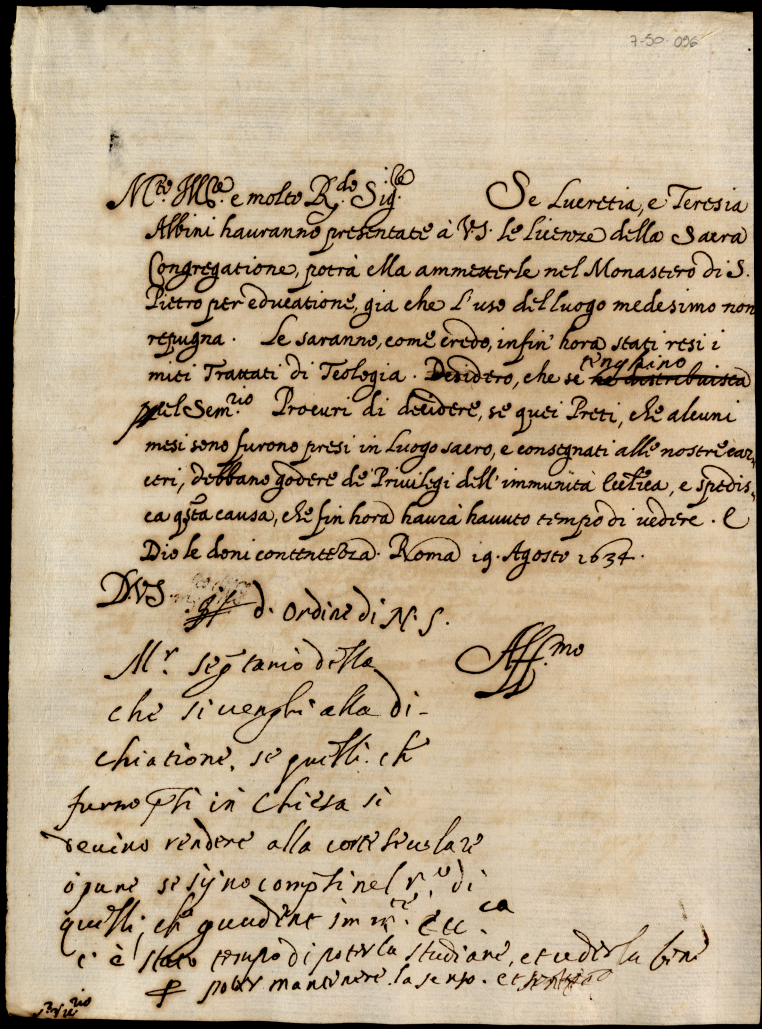 7-50-096
M.to Ill.re e molto R.do Sig.re Se Lucretia, e Teresia
Albini hauranno presentate à VS. le licenze della Sacra
Congregatione, potrà ella ammetterle nel Monastero di S.
Pietro per educatione, già che l'uso del luogo medesimo non
repugna. Le saranno, come credo, infin' hora stati resi i
miei Trattati di Teologia. Desidero, che se tenghino
nel Sem.rio Procuri di decidere, se quei Preti, che alcuni
mesi sono furono presi in luogo sacro, e consegnati alle nostre car-
ceri, debbano godere de' Privilegi dell' immunità Eccl.ica, e spedis-
ca q.sta causa, che fin hora haurà hauuto tempo di uedere. E
Dio le doni contentezza. Roma 19. Agosto 1634.
D.VS.
d'Ordine di N.S.
M.r Seg.tario della Aff.mo
che si uenghi alla di-
chiatione, se quelli che
furno p.si in Chiesa si
deuino rendere alla corte seculare
ò pure se sijno comp.si nel di
quelli, che gaudent imm.te Ecc.ca
è stato tempo di poterla studiare, et uederla bene
poter mantenere la